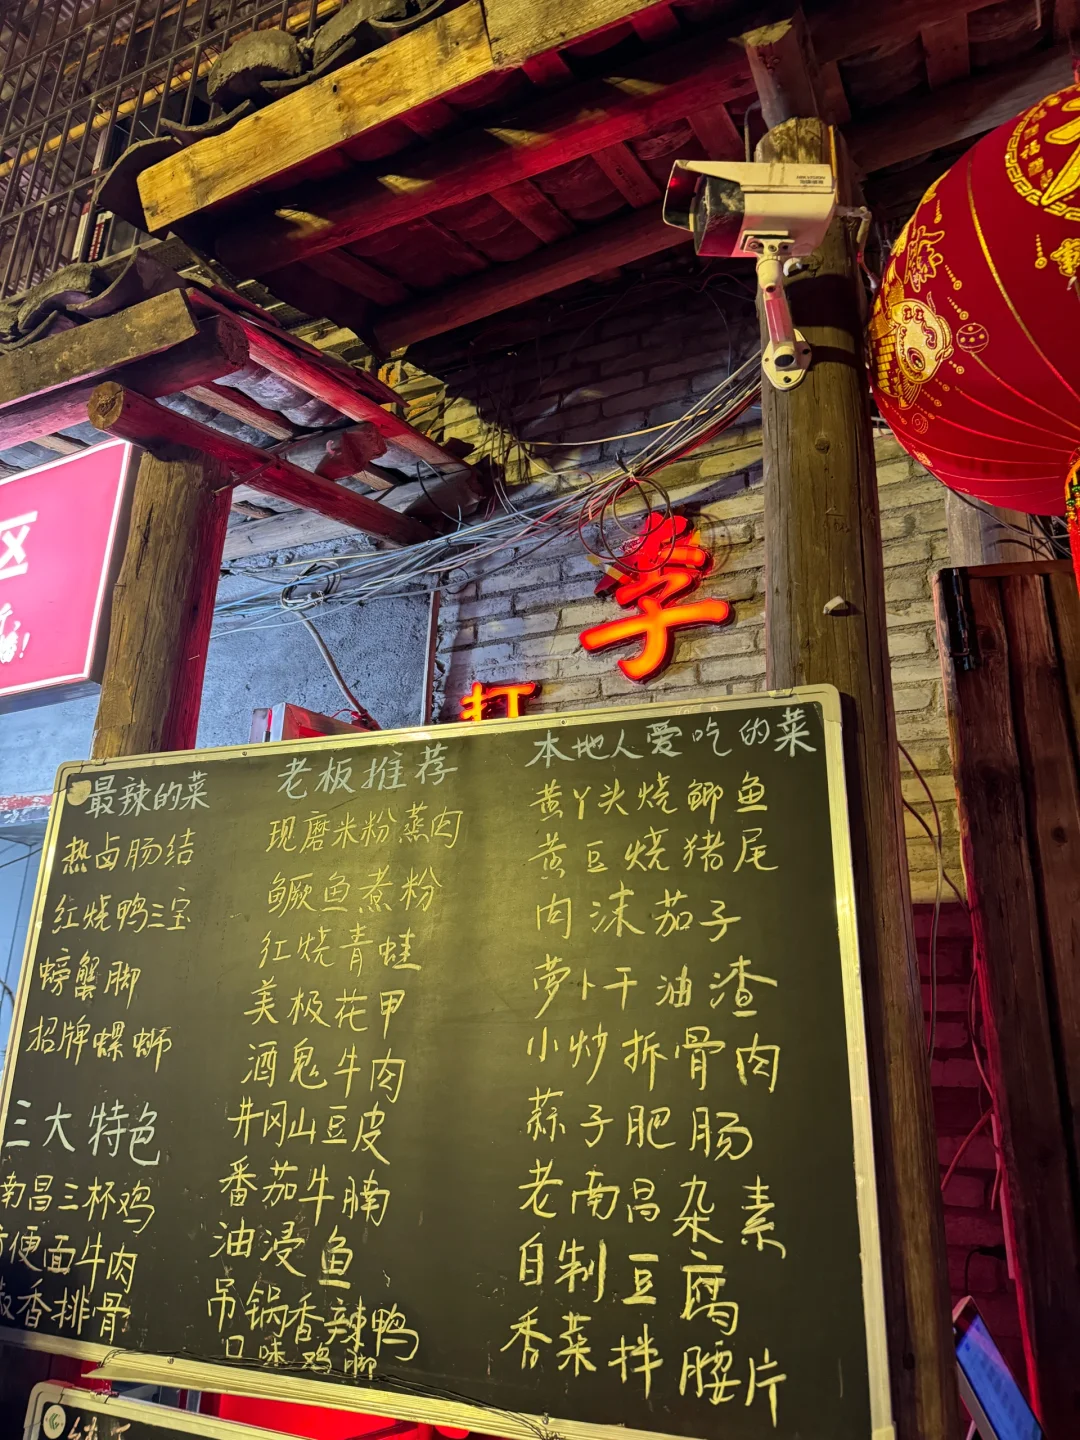 区
李
打
最辣的菜
热卤肠结
红烧鸭三宝
螃蟹脚
招牌螺蛳
三大特色
南昌三杯鸡
方便面牛肉
椒香排骨
老板推荐
现磨米粉蒸肉
鳜鱼煮粉
红烧青蛙
美极花甲
酒鬼牛肉
井冈山豆皮
番茄牛腩
油浸鱼
吊锅香辣鸭
口味鸡脚
本地人爱吃的菜
黄丫头烧鲫鱼
黄豆烧猪尾
肉沫茄子
萝卜干油渣
小炒拆骨肉
蒜子肥肠
老南昌杂素
自制豆腐
香菜拌腰片